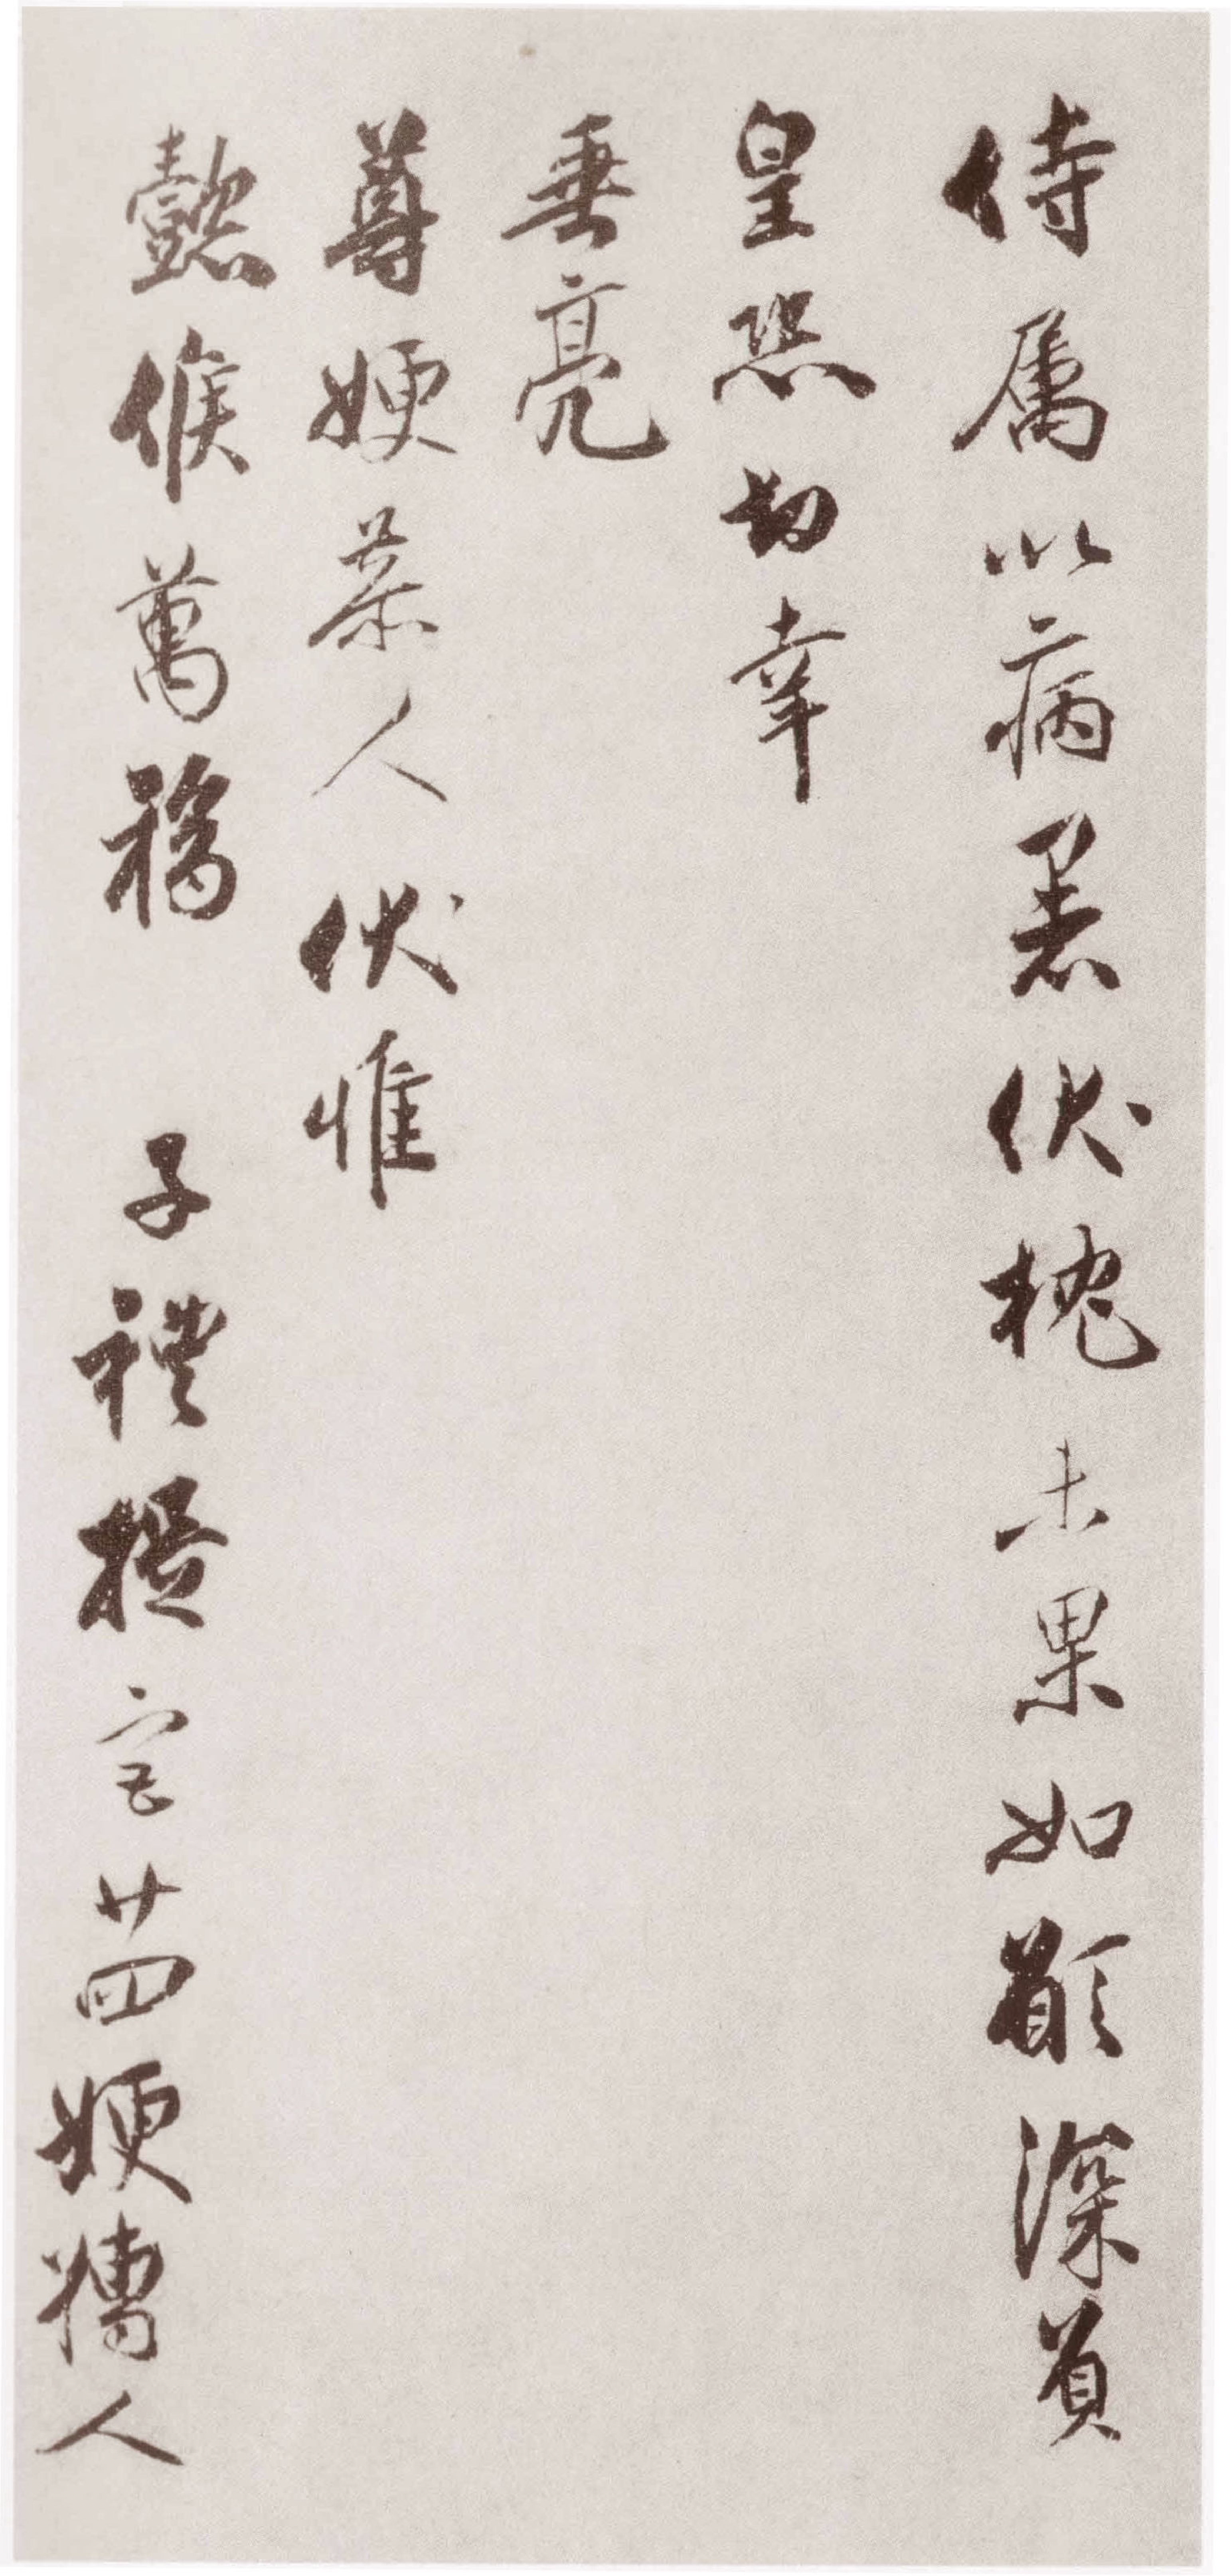 侍属以病恙伏枕未果如願深負
皇恐切幸
垂亮
尊嫂恭人伏惟
懿候萬福 子禮提宫廿四嫂孺人